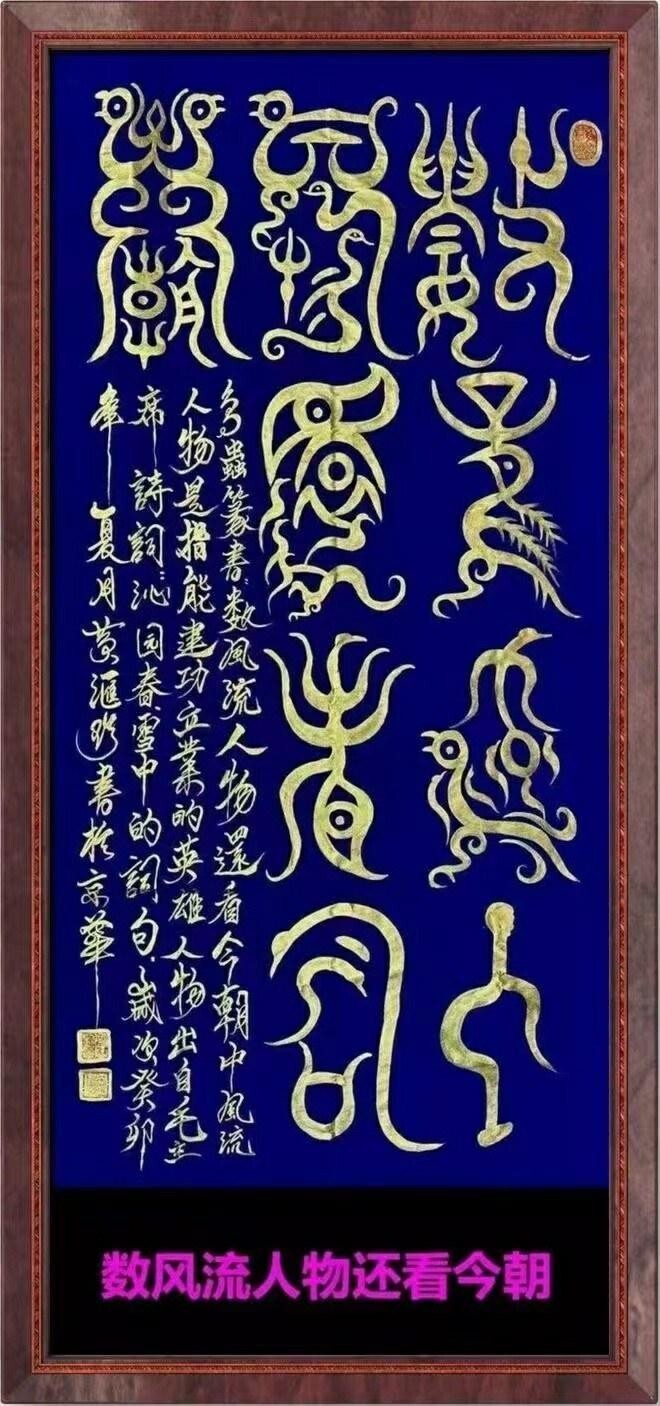 數風流人
物還看今
朝
鸟蟲篆書:数風流人物還看今朝中風流
人物是指能建功立業的英雄人物出自毛主
席詩詞:沁园春雪中的詞句,歲次癸卯
年夏月黄滙書於京華
数风流人物还看今朝